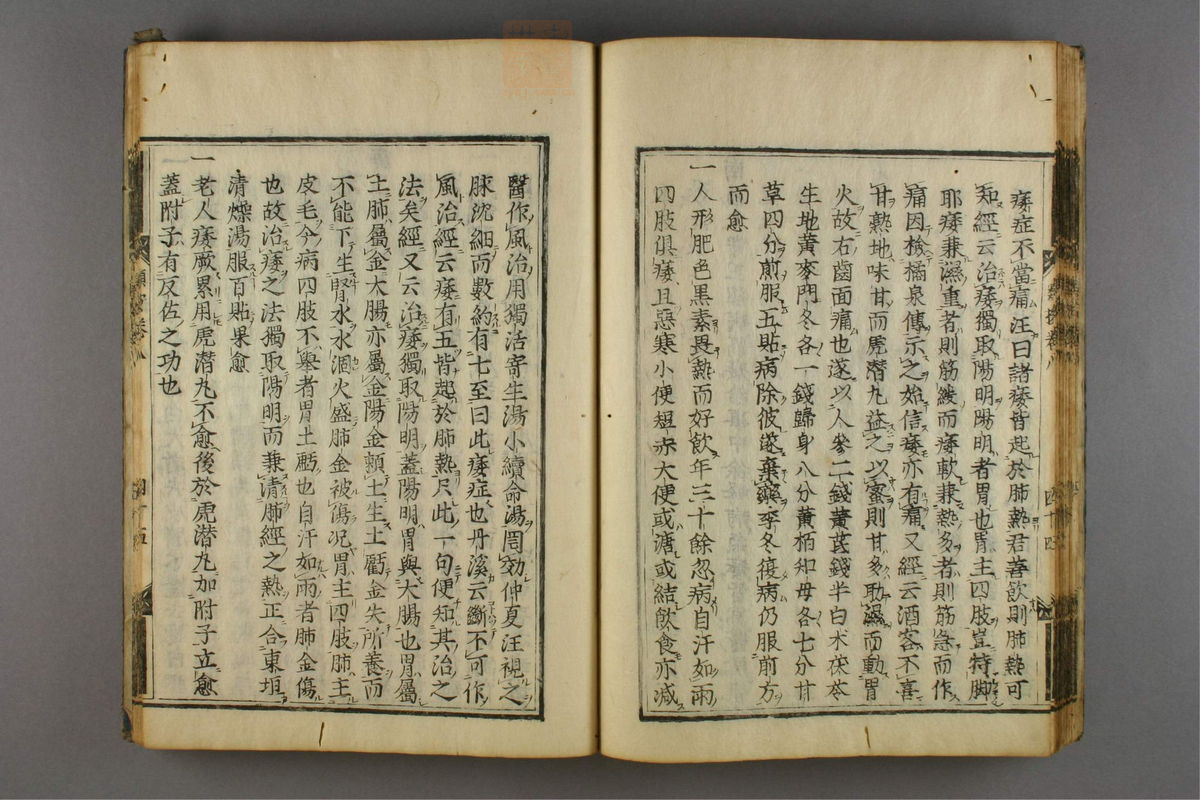 痿症不當痛汪曰諸痿皆起於肺熱君善飲則肺熱可
知經云治痿獨取陽明陽明者胃也胃主四肢豈特脚
耶痿兼濕重者則筋緩而痿軟兼熱多者則筋急而作
痛因檢橘泉傳示之始信痿亦有痛又經云酒客不喜
甘熱地味甘而虎潛丸益之以蜜則甘多助濕而動胃
火故右齒面痛也遂以人參二錢黄芪錢半白术茯苓
生地黄麥門冬各一錢歸身八分黄栢知母各七分甘
草四分煎服五貼病除彼遂棄藥季冬復病仍服前方
而愈
一人形肥色黒素畏熱而好飲年三十餘忽病自汗如雨
四肢俱痿且惡寒小便短赤大便或溏或結飲食亦减
醫作風治用獨活寄生湯小續命湯罔効仲夏汪視之
脉沈細而數約有七至曰此痿症也丹溪云斷不可作
風治經云痿有五皆起於肺熱只此一句便知其治之
法矣經又云治痿獨取陽明蓋陽明胃與大腸也胃屬
土肺屬金大腸亦屬金陽金頼土生土虧金失所養而
不能下生腎水水涸火盛肺金被傷况胃主四肢肺主
皮毛今病四肢不舉者胃土虧也自汗如雨者肺金傷
也故治痿之法獨取陽明而兼清肺經之熱正合東垣
清燥湯服百貼果愈
一老人痿厥累用虎潛丸不愈後於虎潛丸加附子立愈
蓋附子有反佐之功也